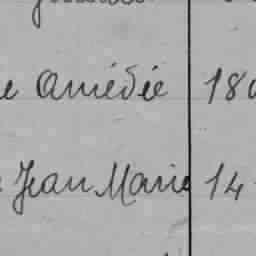 e Amédée 180
Jean Marie 14